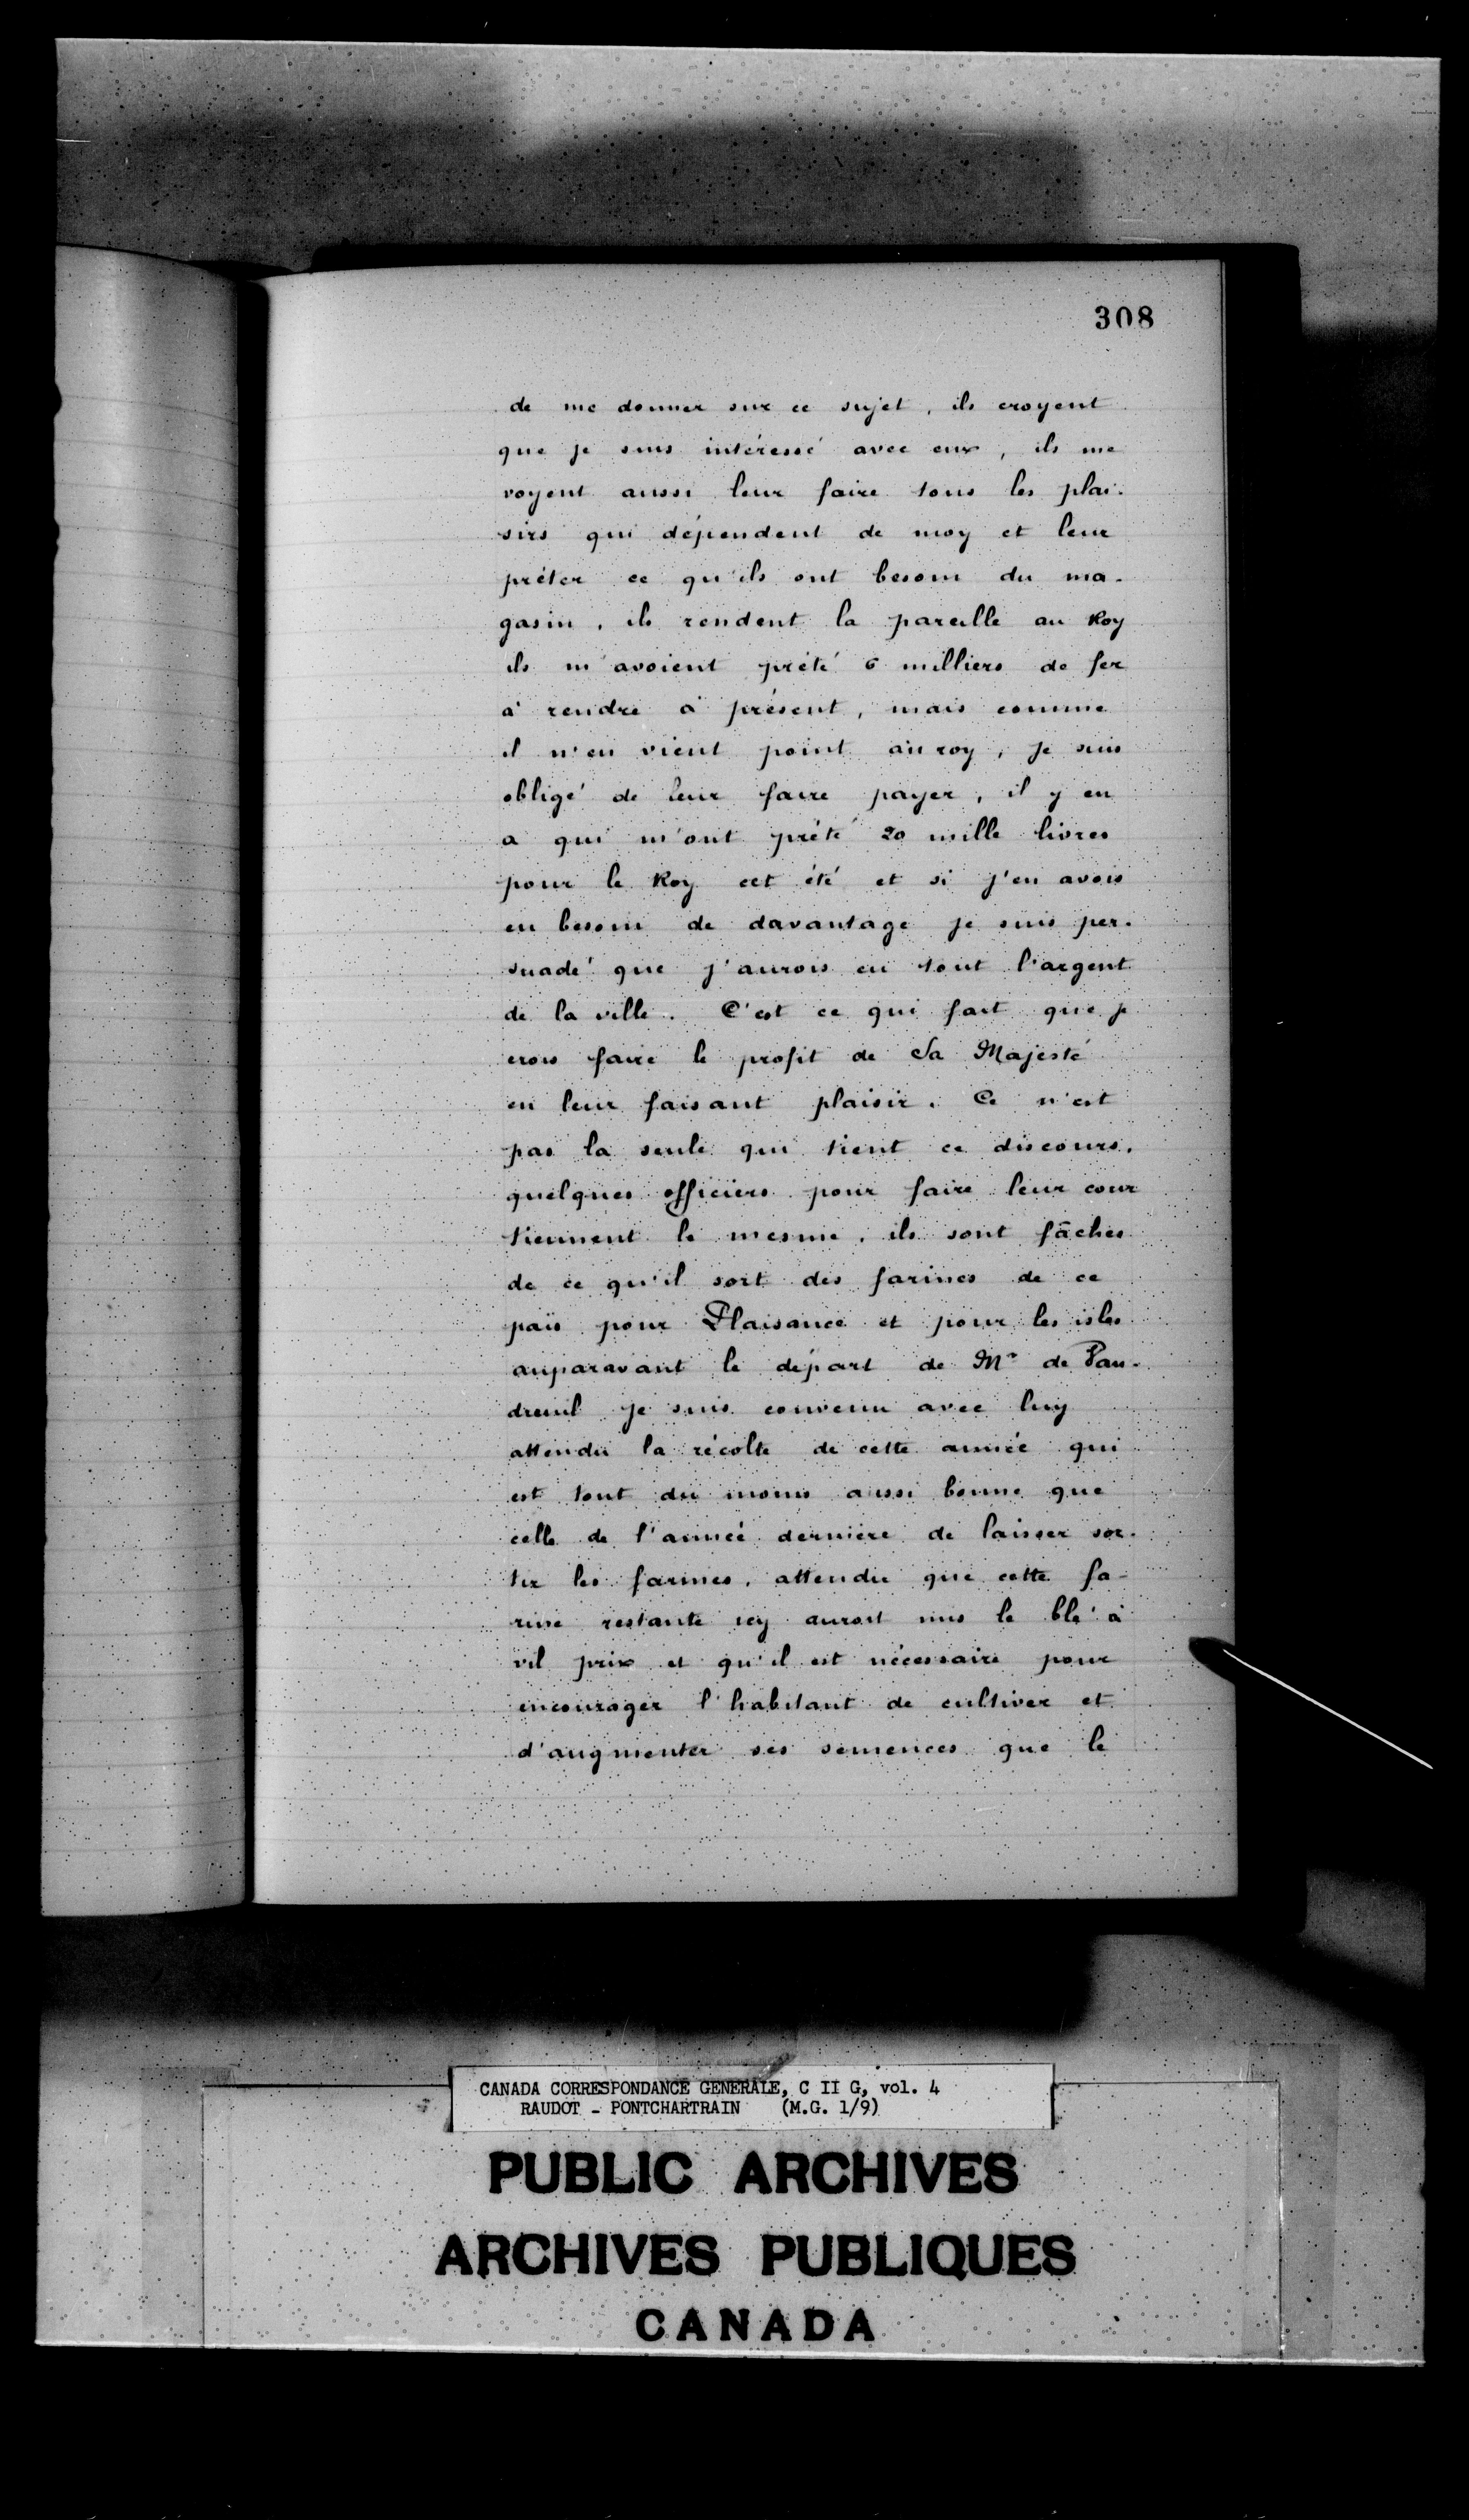 308
de me donner sur ce sujet, ils croyent
que je suis intéressé avec eux, ils me
voyent aussi leur faire tous les plai-
sirs qui dépendent de moy et leur
préter ce qu'ils ont besoin du ma-
gasin, ils rendent la pareille au Roy
ils m'avoient prété 6 milliers de fer
à rendre à présent, mais comme
il n'en vient point au roy, je suis
obligé de leur faire payer, il y en
a qui m'ont prété 20 mille livres
pour le Roy cet été et si j'en avois
eu besoin de davantage je suis per-
suadé que j'aurois eu tout l'argent
de la ville. C'est ce qui fait que je
crois faire le profit de Sa Majesté
en leur faisant plaisir. Ce n'est
pas la seule qui tient ce discours,
quelques officiers pour faire leur cour
tiennent le mesme, ils sont fâches
de ce qu'il sort des farines de ce
païs pour Plaisance et pour les isles
auparavant le départ de Mr de Vau-
dreuil je suis convenu avec luy
attendu la récolte de cette année qui
est tout du moins aussi bonne que
celle de l'année dernière de laisser sor-
tir les farines, attendu que cette fa-
rine restante icy auroit mis le blé à
vil prix et qu'il est nécessaire pour
encourager l'habitant de cultiver et
d'augmenter ses semences que le
CANADA CORRESPONDANCE GENERALE, C II G, vol. 4
RAUDOT - PONTCHARTRAIN (M.G. 1/9)
PUBLIC ARCHIVES
ARCHIVES PUBLIQUES
CANADA